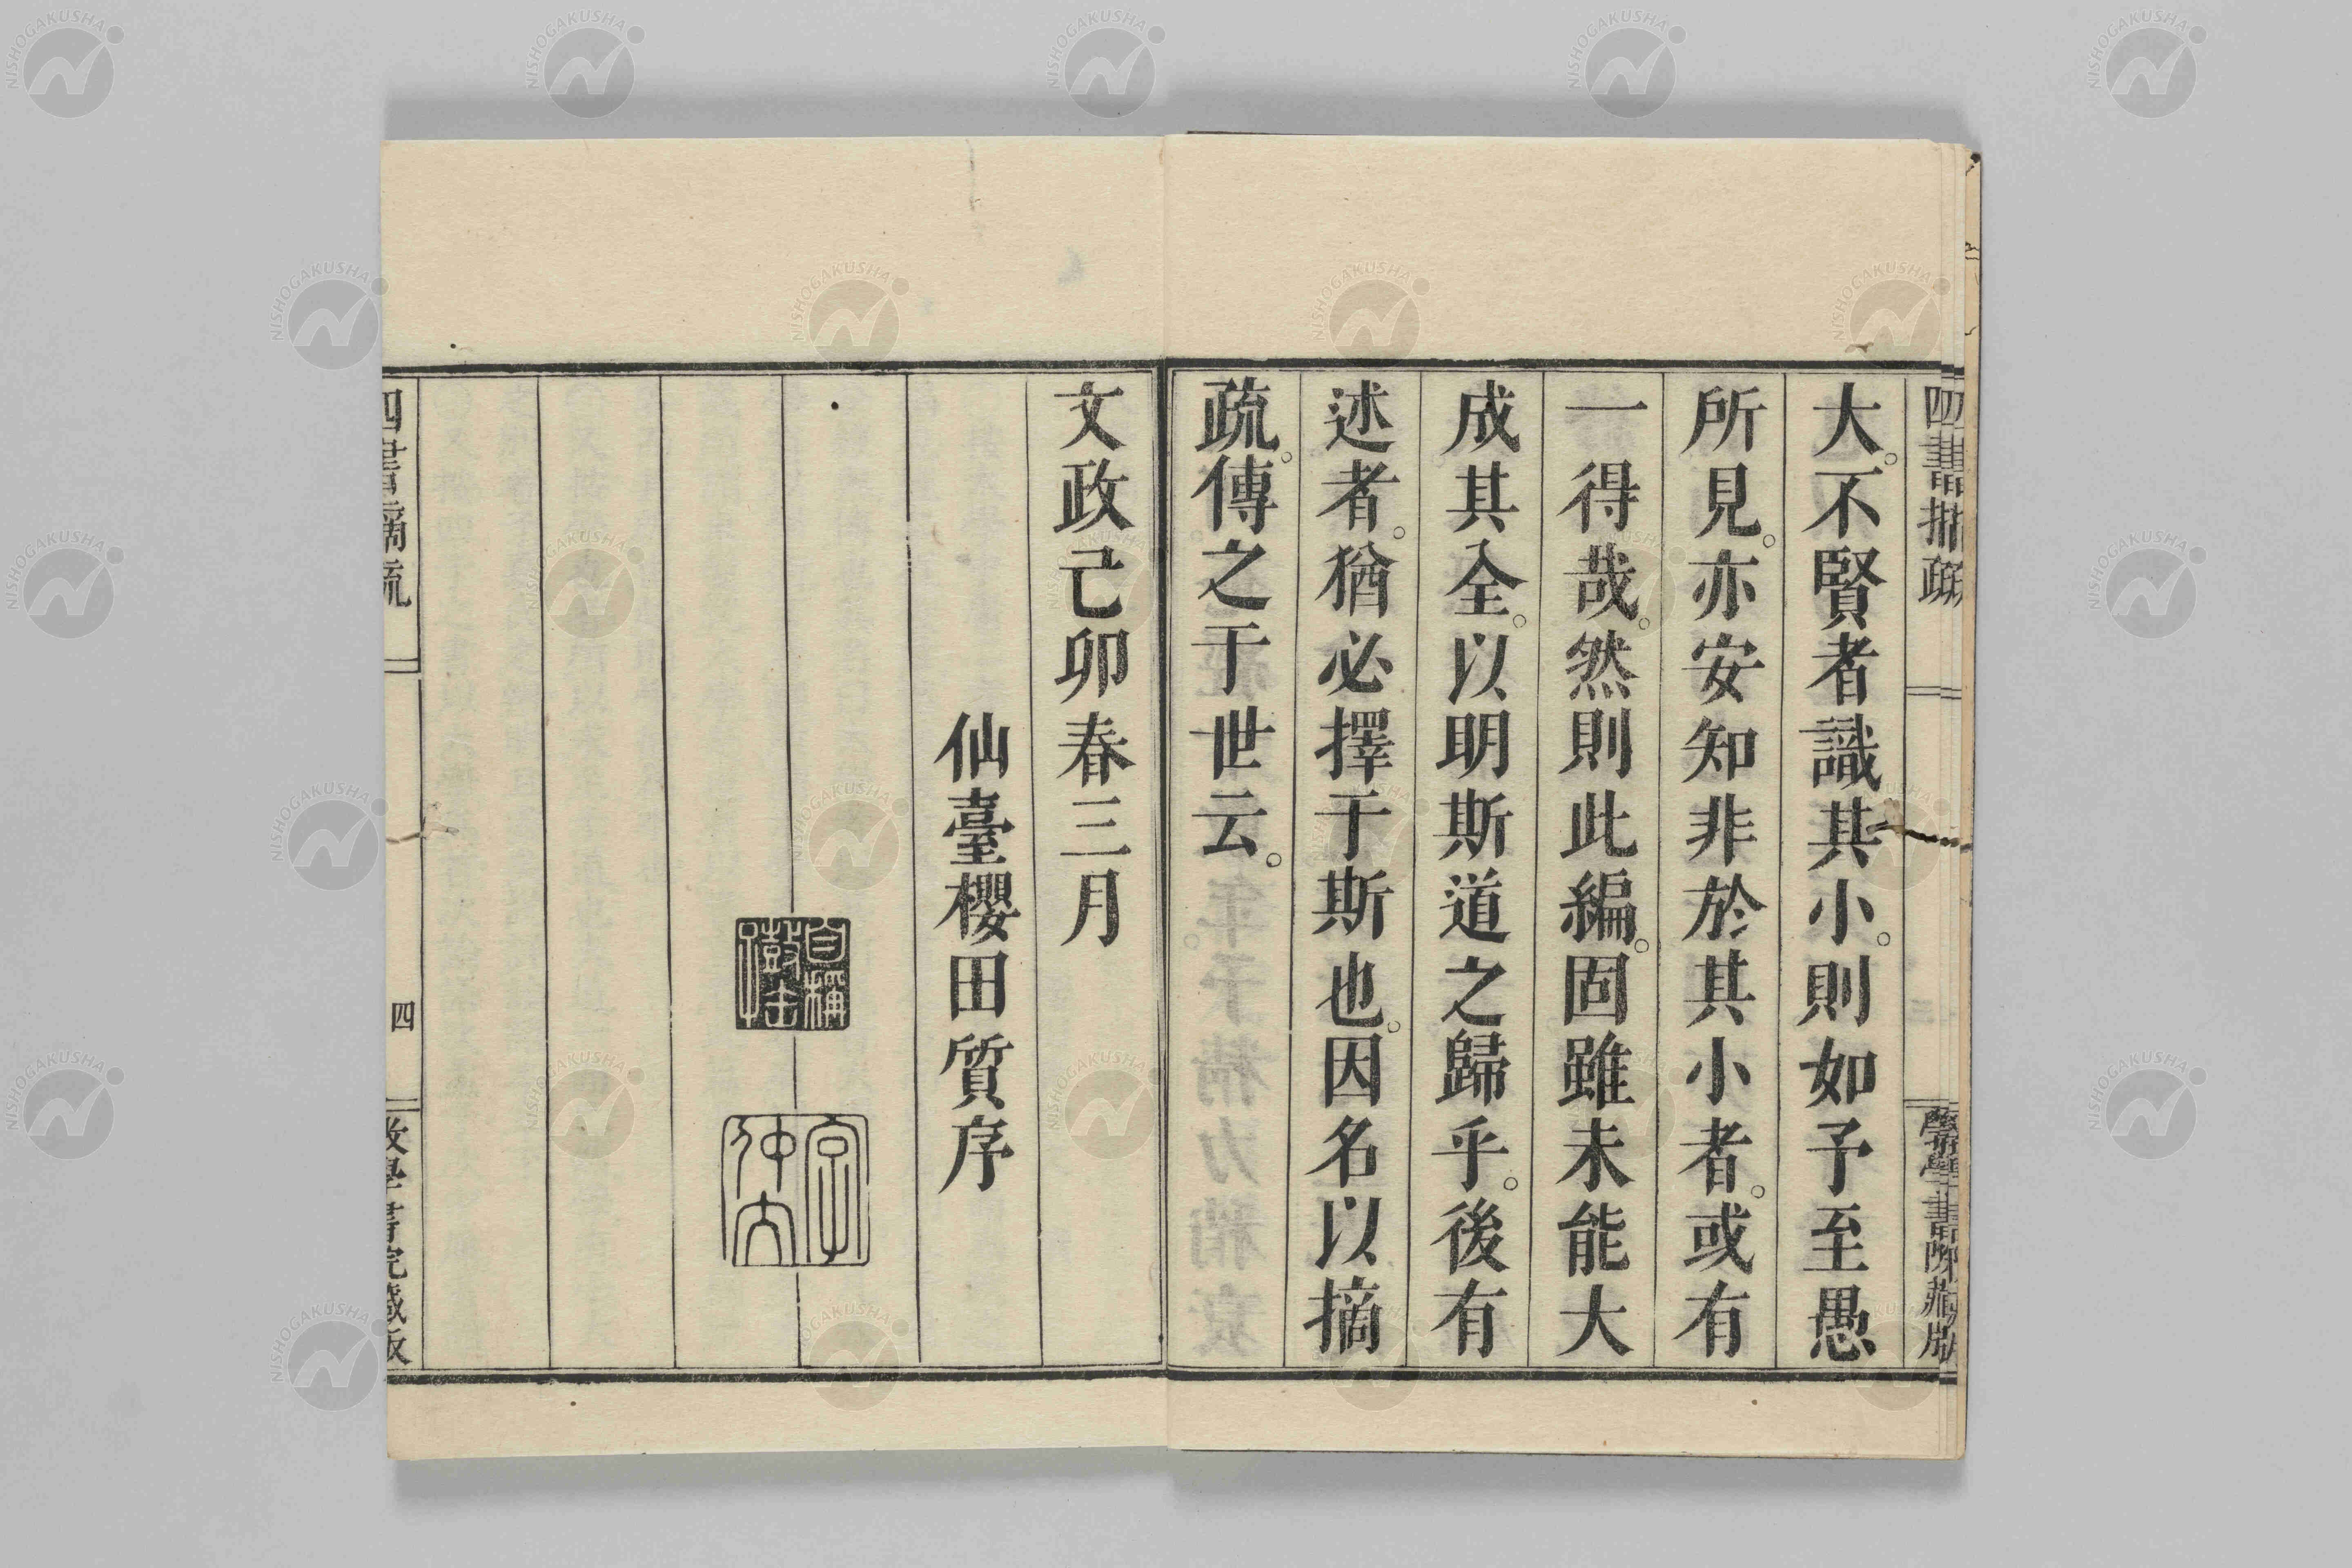 四書摘疏
大。不賢者識其小。則如予至愚
所見。亦安知非於其小者。或有
一得哉。然則此編。固雖未能大
成其全。以明斯道之歸乎。後有
述者。猶必擇于斯也。因名以摘
疏。傳之于世云。
文政己卯春三月
仙臺櫻田質序
字仲文
四書摘疏
四
NISHOGAKUSHA